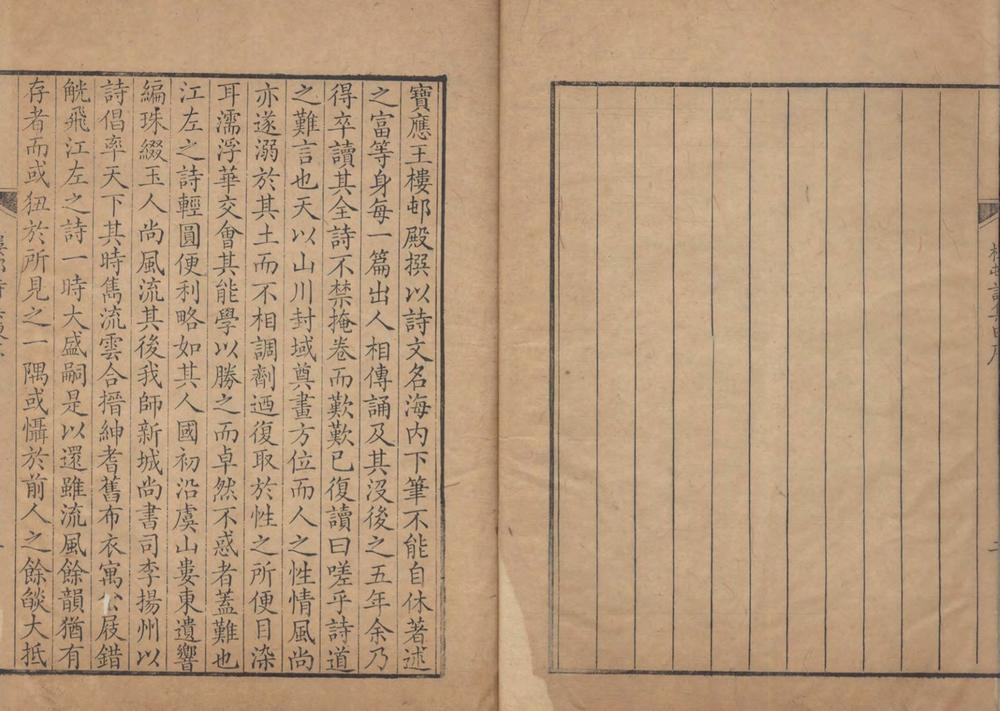 寶應王樓邨殿撰以詩文名海内下筆不能自休著述
之富等身每一篇出人相傳誦及其沒後之五年余乃
得卒讀其全詩不禁掩卷而歎歎已復讀曰嗟乎詩道
之難言也天以山川封域奠畫方位而人之性情風尚
亦遂溺於其土而不相調劑迺復取於性之所便目染
耳濡浮華交會其能學以勝之而卓然不惑者蓋難也
江左之詩輕圓便利略如其人國初沿虞山婁東遺響
編珠綴玉人尚風流其後我師新城尚書司李揚州以
詩倡率天下其時雋流雲合搢紳耆舊布衣寓公屐錯
觥飛江左之詩一時大盛嗣是以還雖流風餘韻猶有
存者而或狃於所見之一隅或懾於前人之餘燄大抵